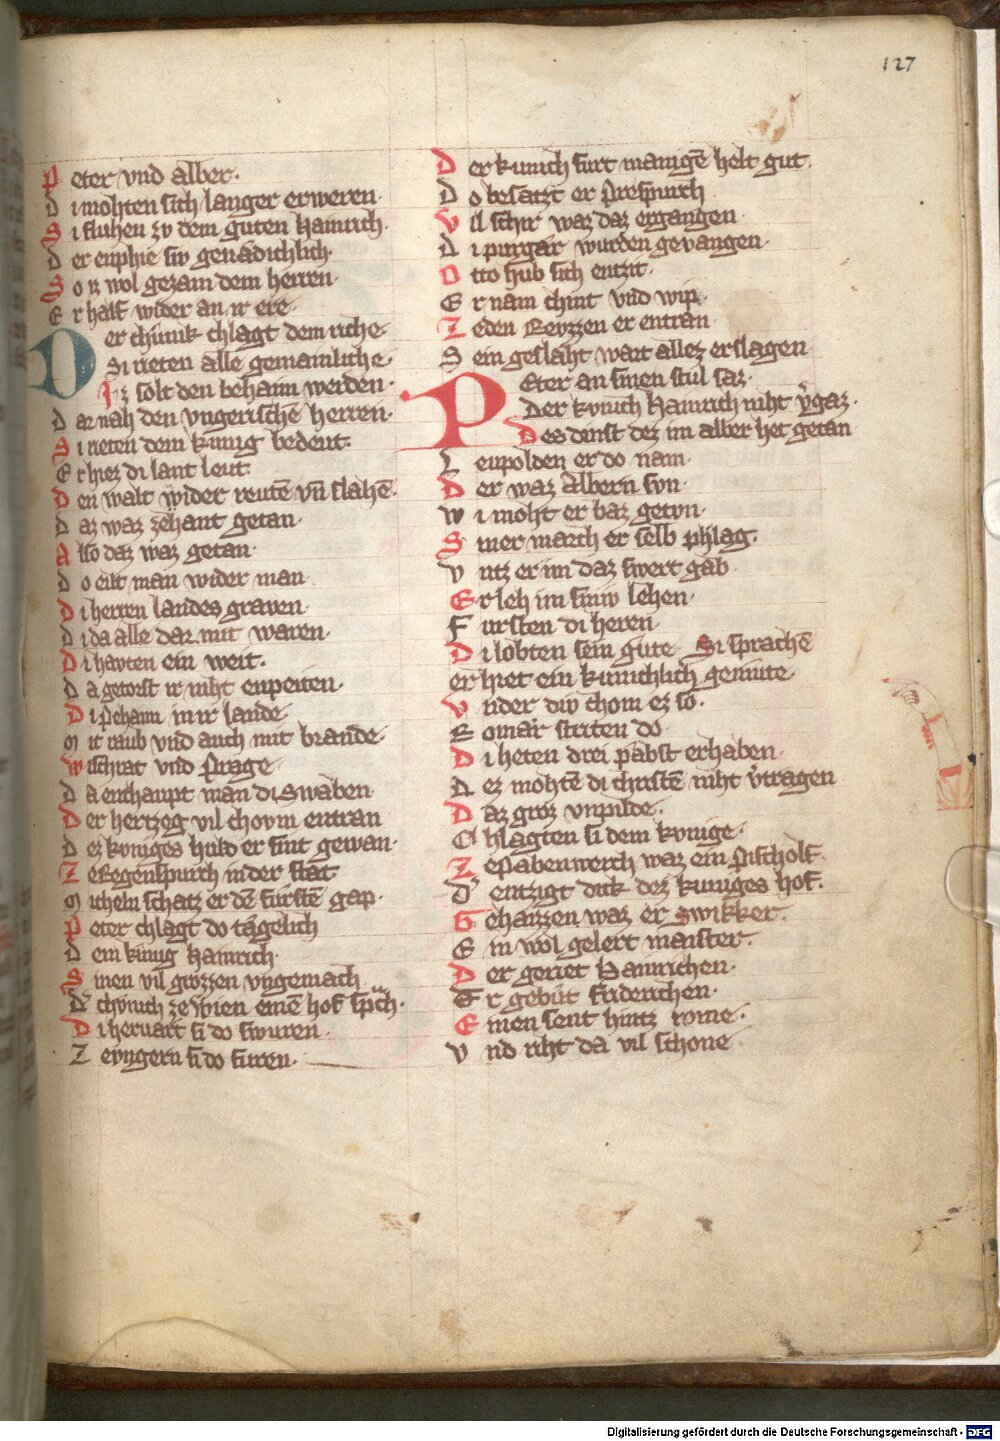 127
Peter vnd alber·
Di mohten sich langer erweren·
Si fluhen zv dem guten hainrich·
Der enphie siv genadichlich·
So iz wol gezam dem herren·
Er half wider an ir ere·
Der chunik chlagt dem riche·
Si rieten alle gemainliche·
Iz solt den behaim werden·
Dar nah den vngerischē herren·
Si rieten dem kunig bedeut:
Er hiez di lant leut:
Den walt wider reutē vn̄ slahē·
Daz waz zehant getan·
Also daz waz getan·
Do eilt man wider man
Di herren landes graven·
Di da alle dar mit waren·
Di havten ein weit.
Da getorst ir niht enpeiten·
Di pehaim in ir lande
Mit raub vnd auch mit brande·
Wischrat vnd prage
Da enthaupt man di Swaben
Der hertzog vil chovm entran
Dez kvniges huld er sint gewan·
Ze Regenspurch in der stat
Micheln schatz er dē furstē gap·
Peter chlagt do tægelich
Dem kunig hainrich·
Sinen vil grozzen vngemach
Dᵉ chvnich ze Wien einē hof sp̃ch·
Di hervart si do swuren·
Ze vngern si do furen·
Der kunich furt manigē helt gut·
Do besatzt er prespurch
Vil schir waz daz ergangen·
Di purgar wurden gevangen·
Otto hub sich enzit·
Er nam chint vnd wip·
Zeden Revzzen er entran·
Sein geslæht wart allez erslagen
Peter an sinen stul saz·
Der kvnich hainrich niht v̉gaz·
Des denst dez im alber het getan
Leupolden er do nam·
Der waz Albern svn·
Wi moht er baz getvn·
Siner march er selb phlag·
Vntz er im daz swert gab·
Er leh im siniv lehen·
Fursten di heren·
Di lobten sein gute· Si sprachē
er hiet ein kunichlich gemute
Vnder div chom ez so·
Romær striten do·
Di heten drei pabst erhaben·
Dez mohtē di christē niht v̉tragen
Daz groz vnpilde·
Chlagten si dem kvnige·
Ze Pabenwerch waz ein Pischolf·
Dᵉ entzigt dick dez kuniges hof·
Gehaizzen waz er swikker·
Ein wol gelert maister·
Der geriet hainrichen·
Er gebut friderichen·
Einen sent hintz rome·
Vnd riht da vil schone·
Digitalisierung gefördert durch die Deutsche Forschungsgemeinschaft - DFG